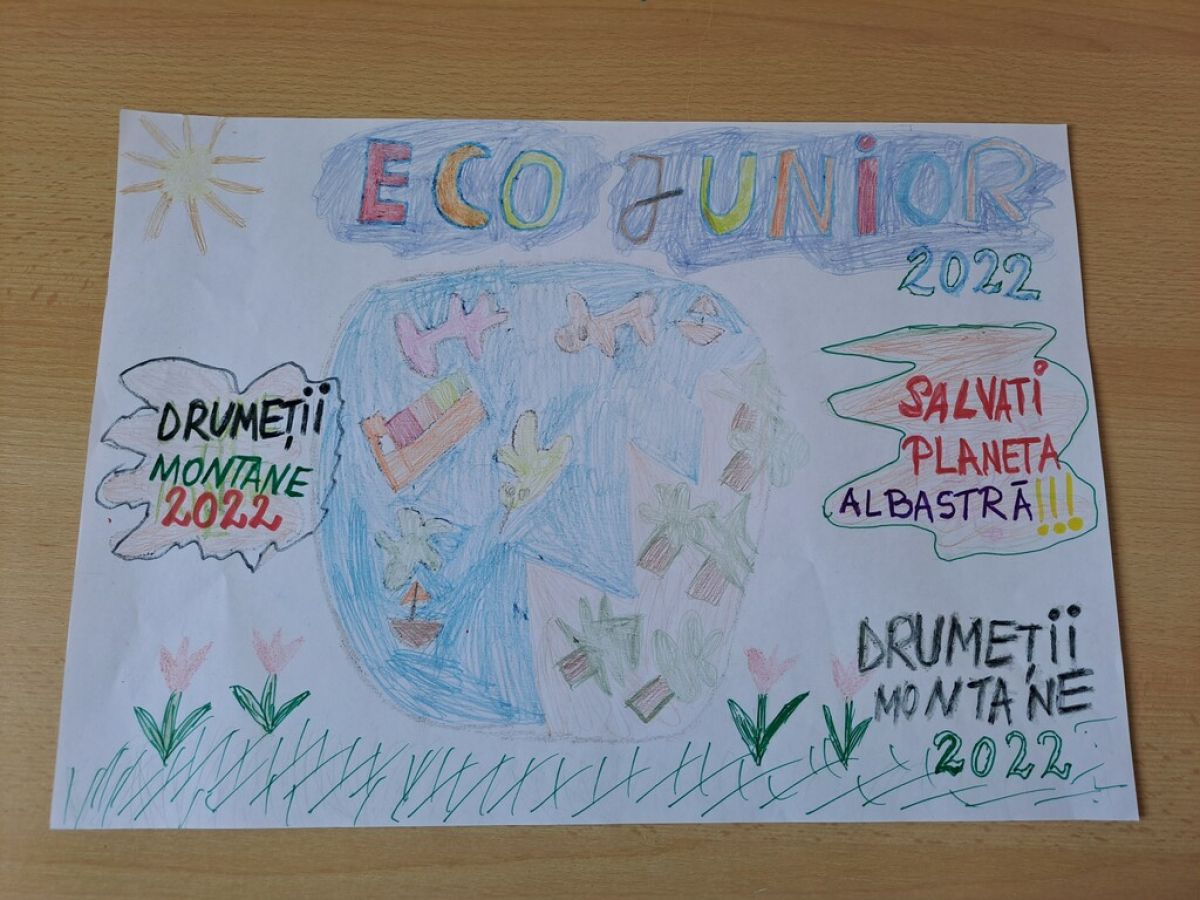 ECO JUNIOR
2022
DRUMEȚII
MONTANE
2022
SALVATI
PLANETA
ALBASTRĂ!!!
DRUMEȚII
MONTANE
2022